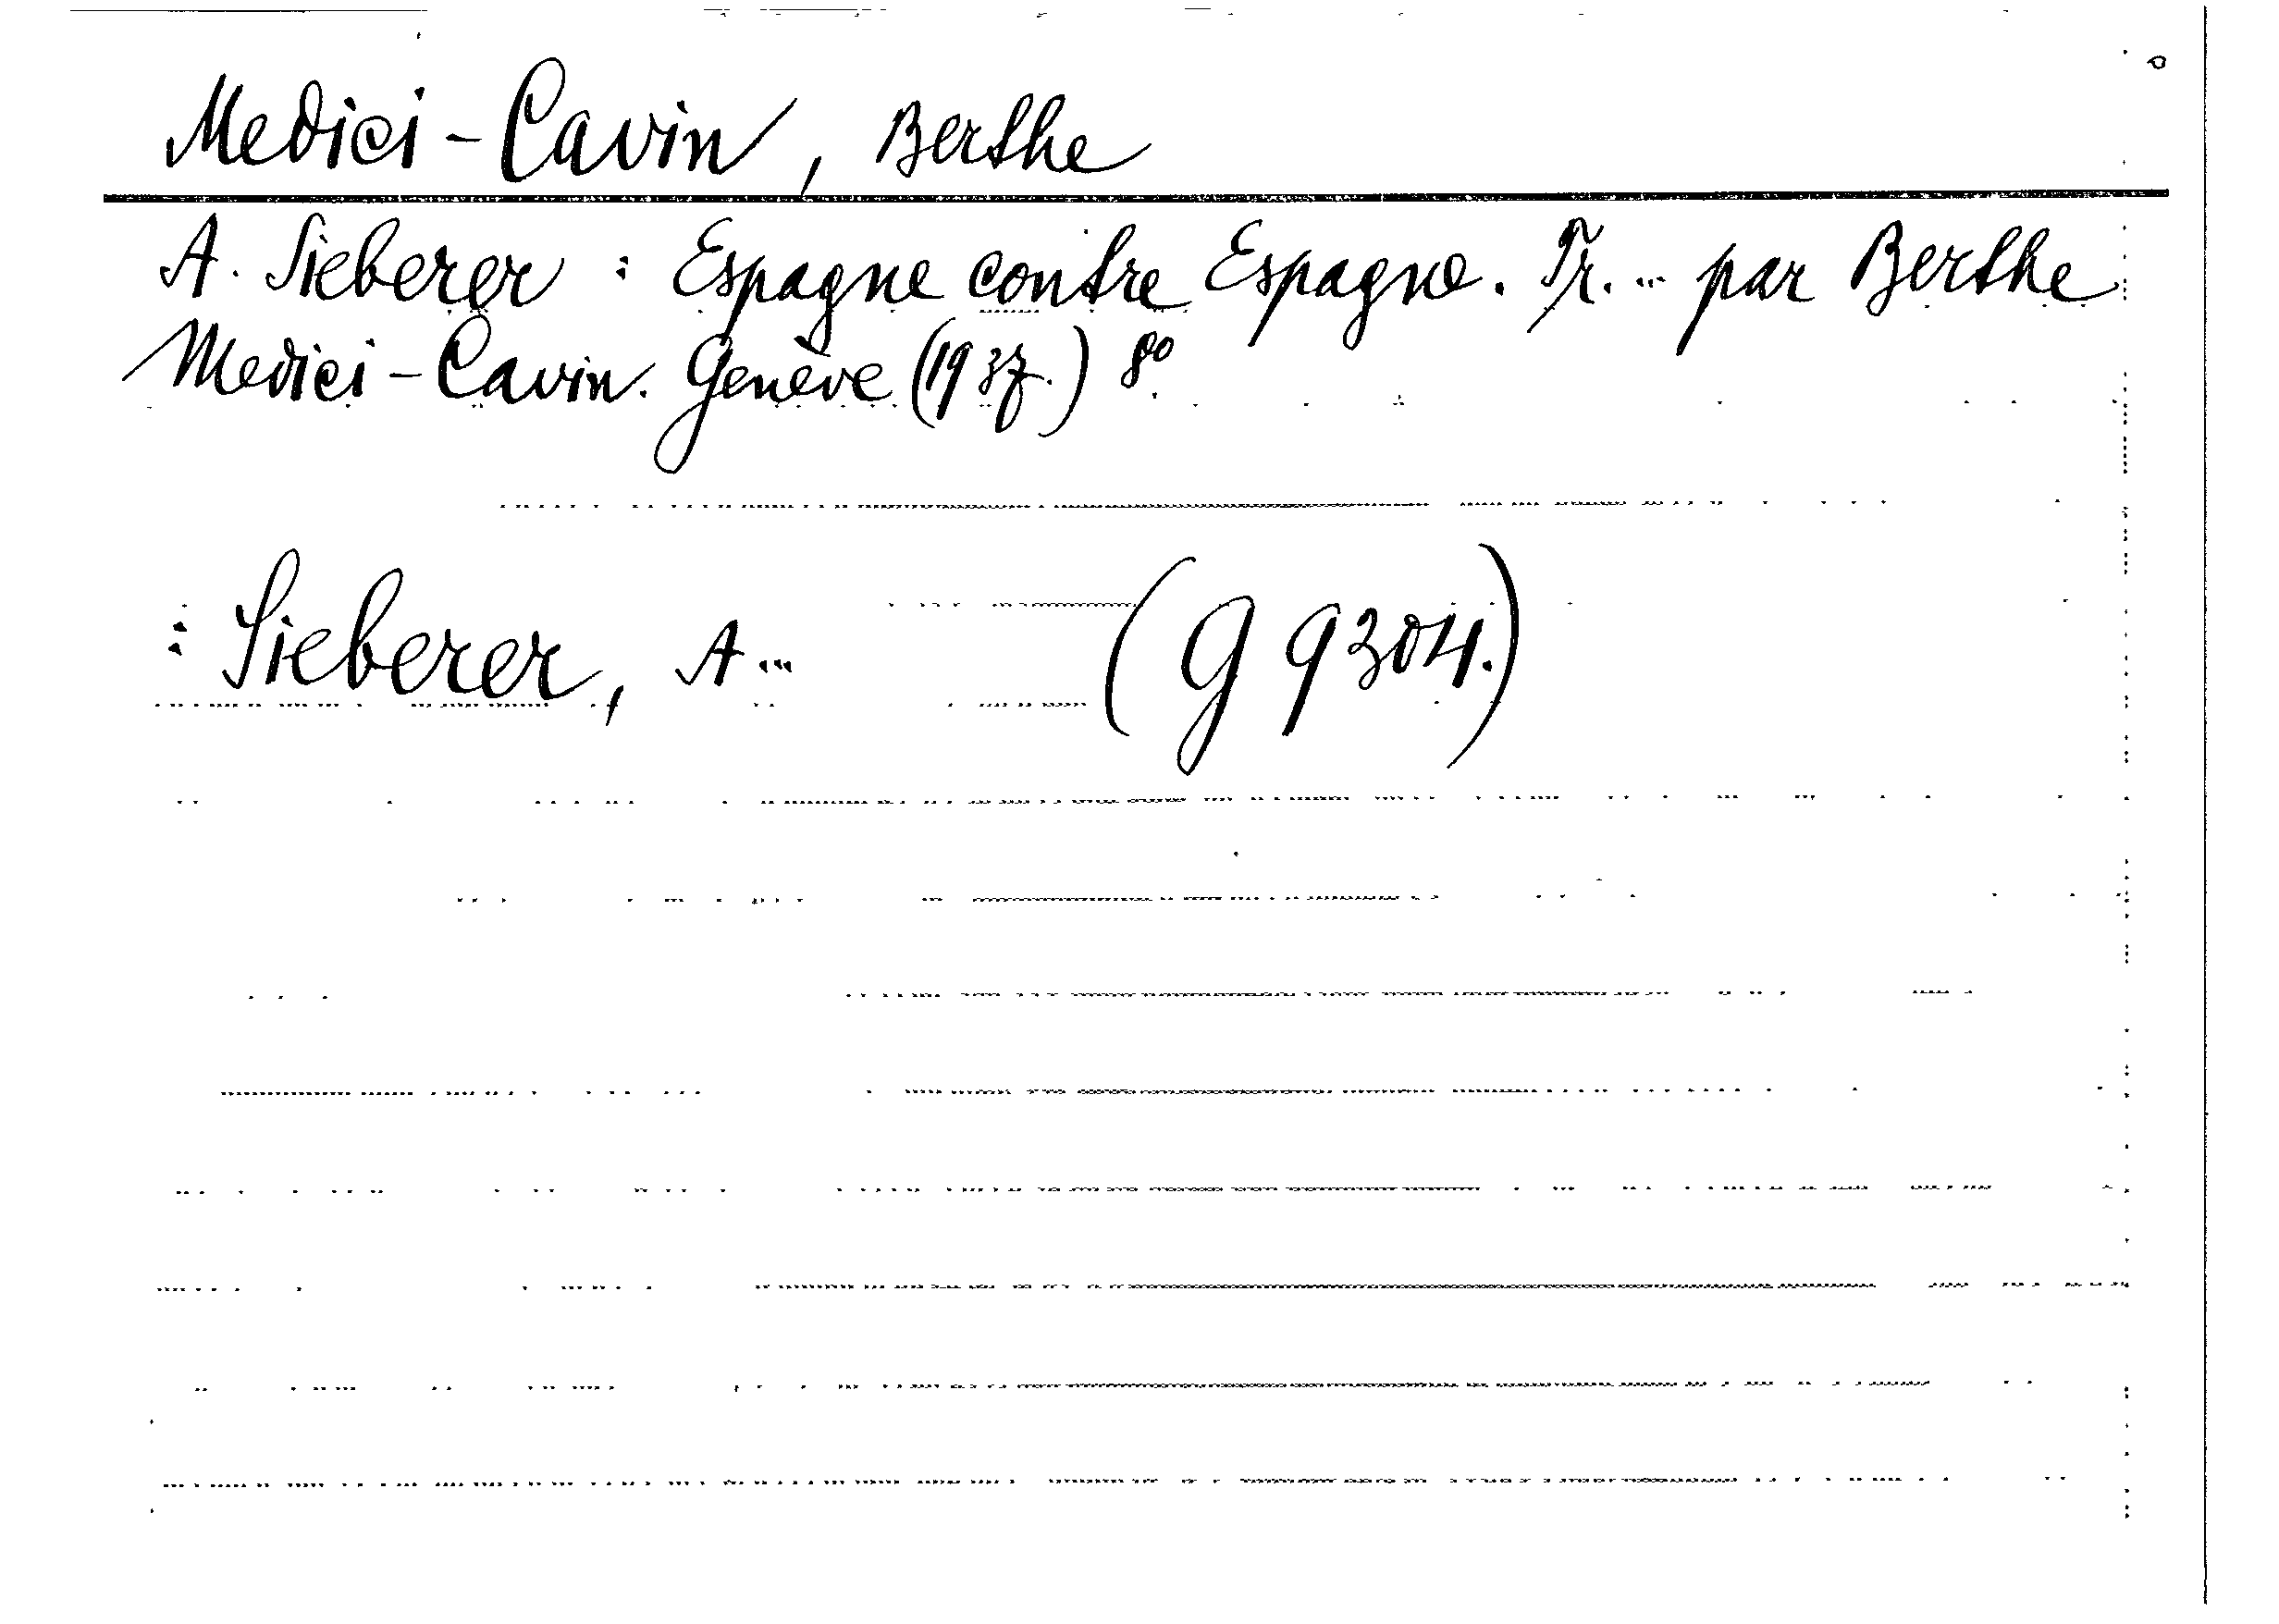 Medici-Cavin, Berthe
A. Sieberer : Espagne contre Espagne. Tr. ... par Berthe
Medici-Cavin. Genève (1937.) 8º.
: Sieberer, A... (G 9304.)